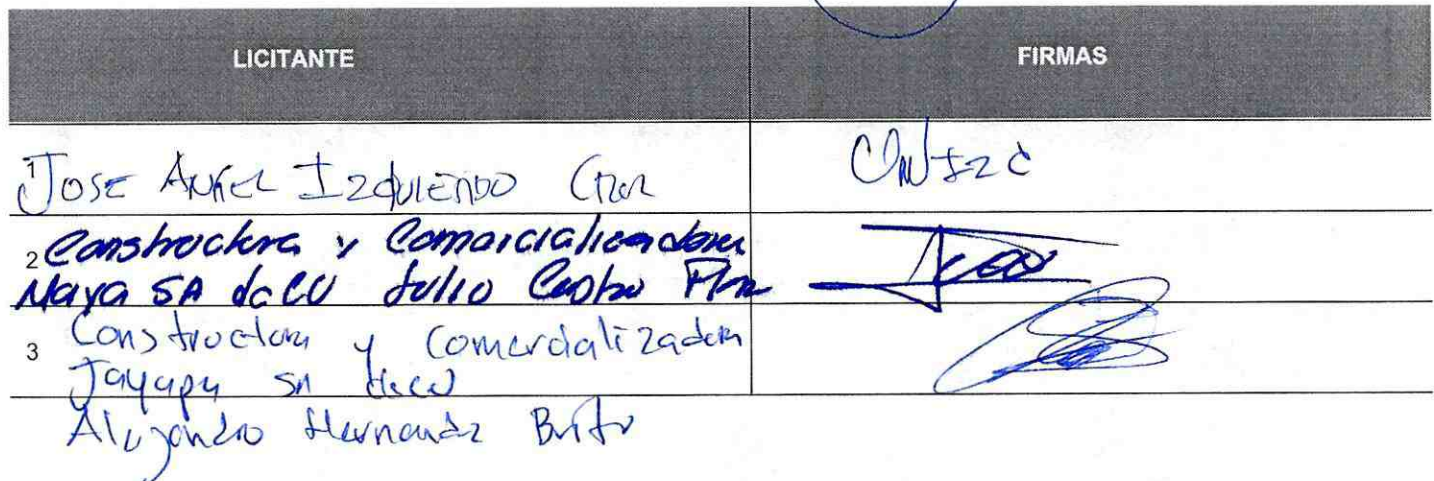 LICITANTE FIRMAS
1 JOSE ANGEL IZQUIERDO
2 Constructora y Comercializadora
Maya SA de CV Julio Castro
3 Constructora y Comercializadora
Jayapa SA de CV
Alejandro Hernandez Brito